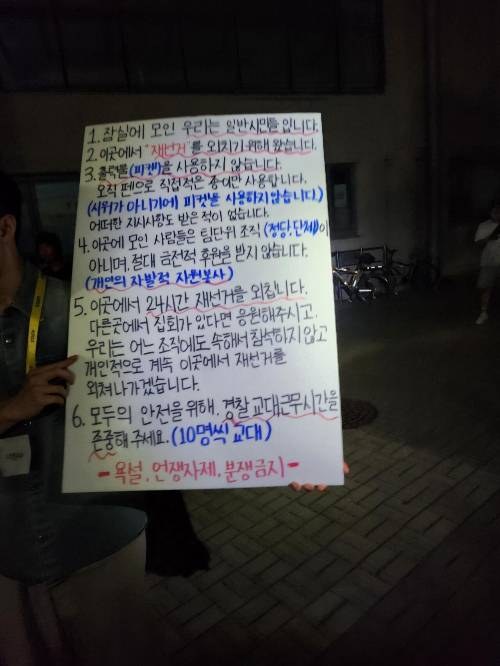 1. 잠실에 모인 우리는 일반시민들입니다.
2. 이곳에서 "재선거"를 외치기 위해 왔습니다.
3. 출력물(피켓)을 사용하지 않습니다.
오직 펜으로 직접적은 종이만 사용합니다.
(시위가 아니기에 피켓을 사용하지않습니다.)
어떠한 지시사항도 받은 적이 없습니다.
4. 이곳에 모인 사람들은 팀단위 조직(정당,단체)이
아니며, 절대 금전적 후원을 받지 않습니다.
(개인의 자발적 자원봉사)
5. 이곳에서 24시간 재선거를 외칩니다.
다른곳에서 집회가 있다면 응원해주시고.
우리는 어느 조직에도 속해서 참석하지 않고
개인적으로 계속 이곳에서 재선거를
외쳐나가겠습니다.
6. 모두의 안전을 위해, 경찰 교대근무시간을
존중해 주세요. (10명씩 교대)
- 욕설, 언쟁자제, 분쟁금지 -